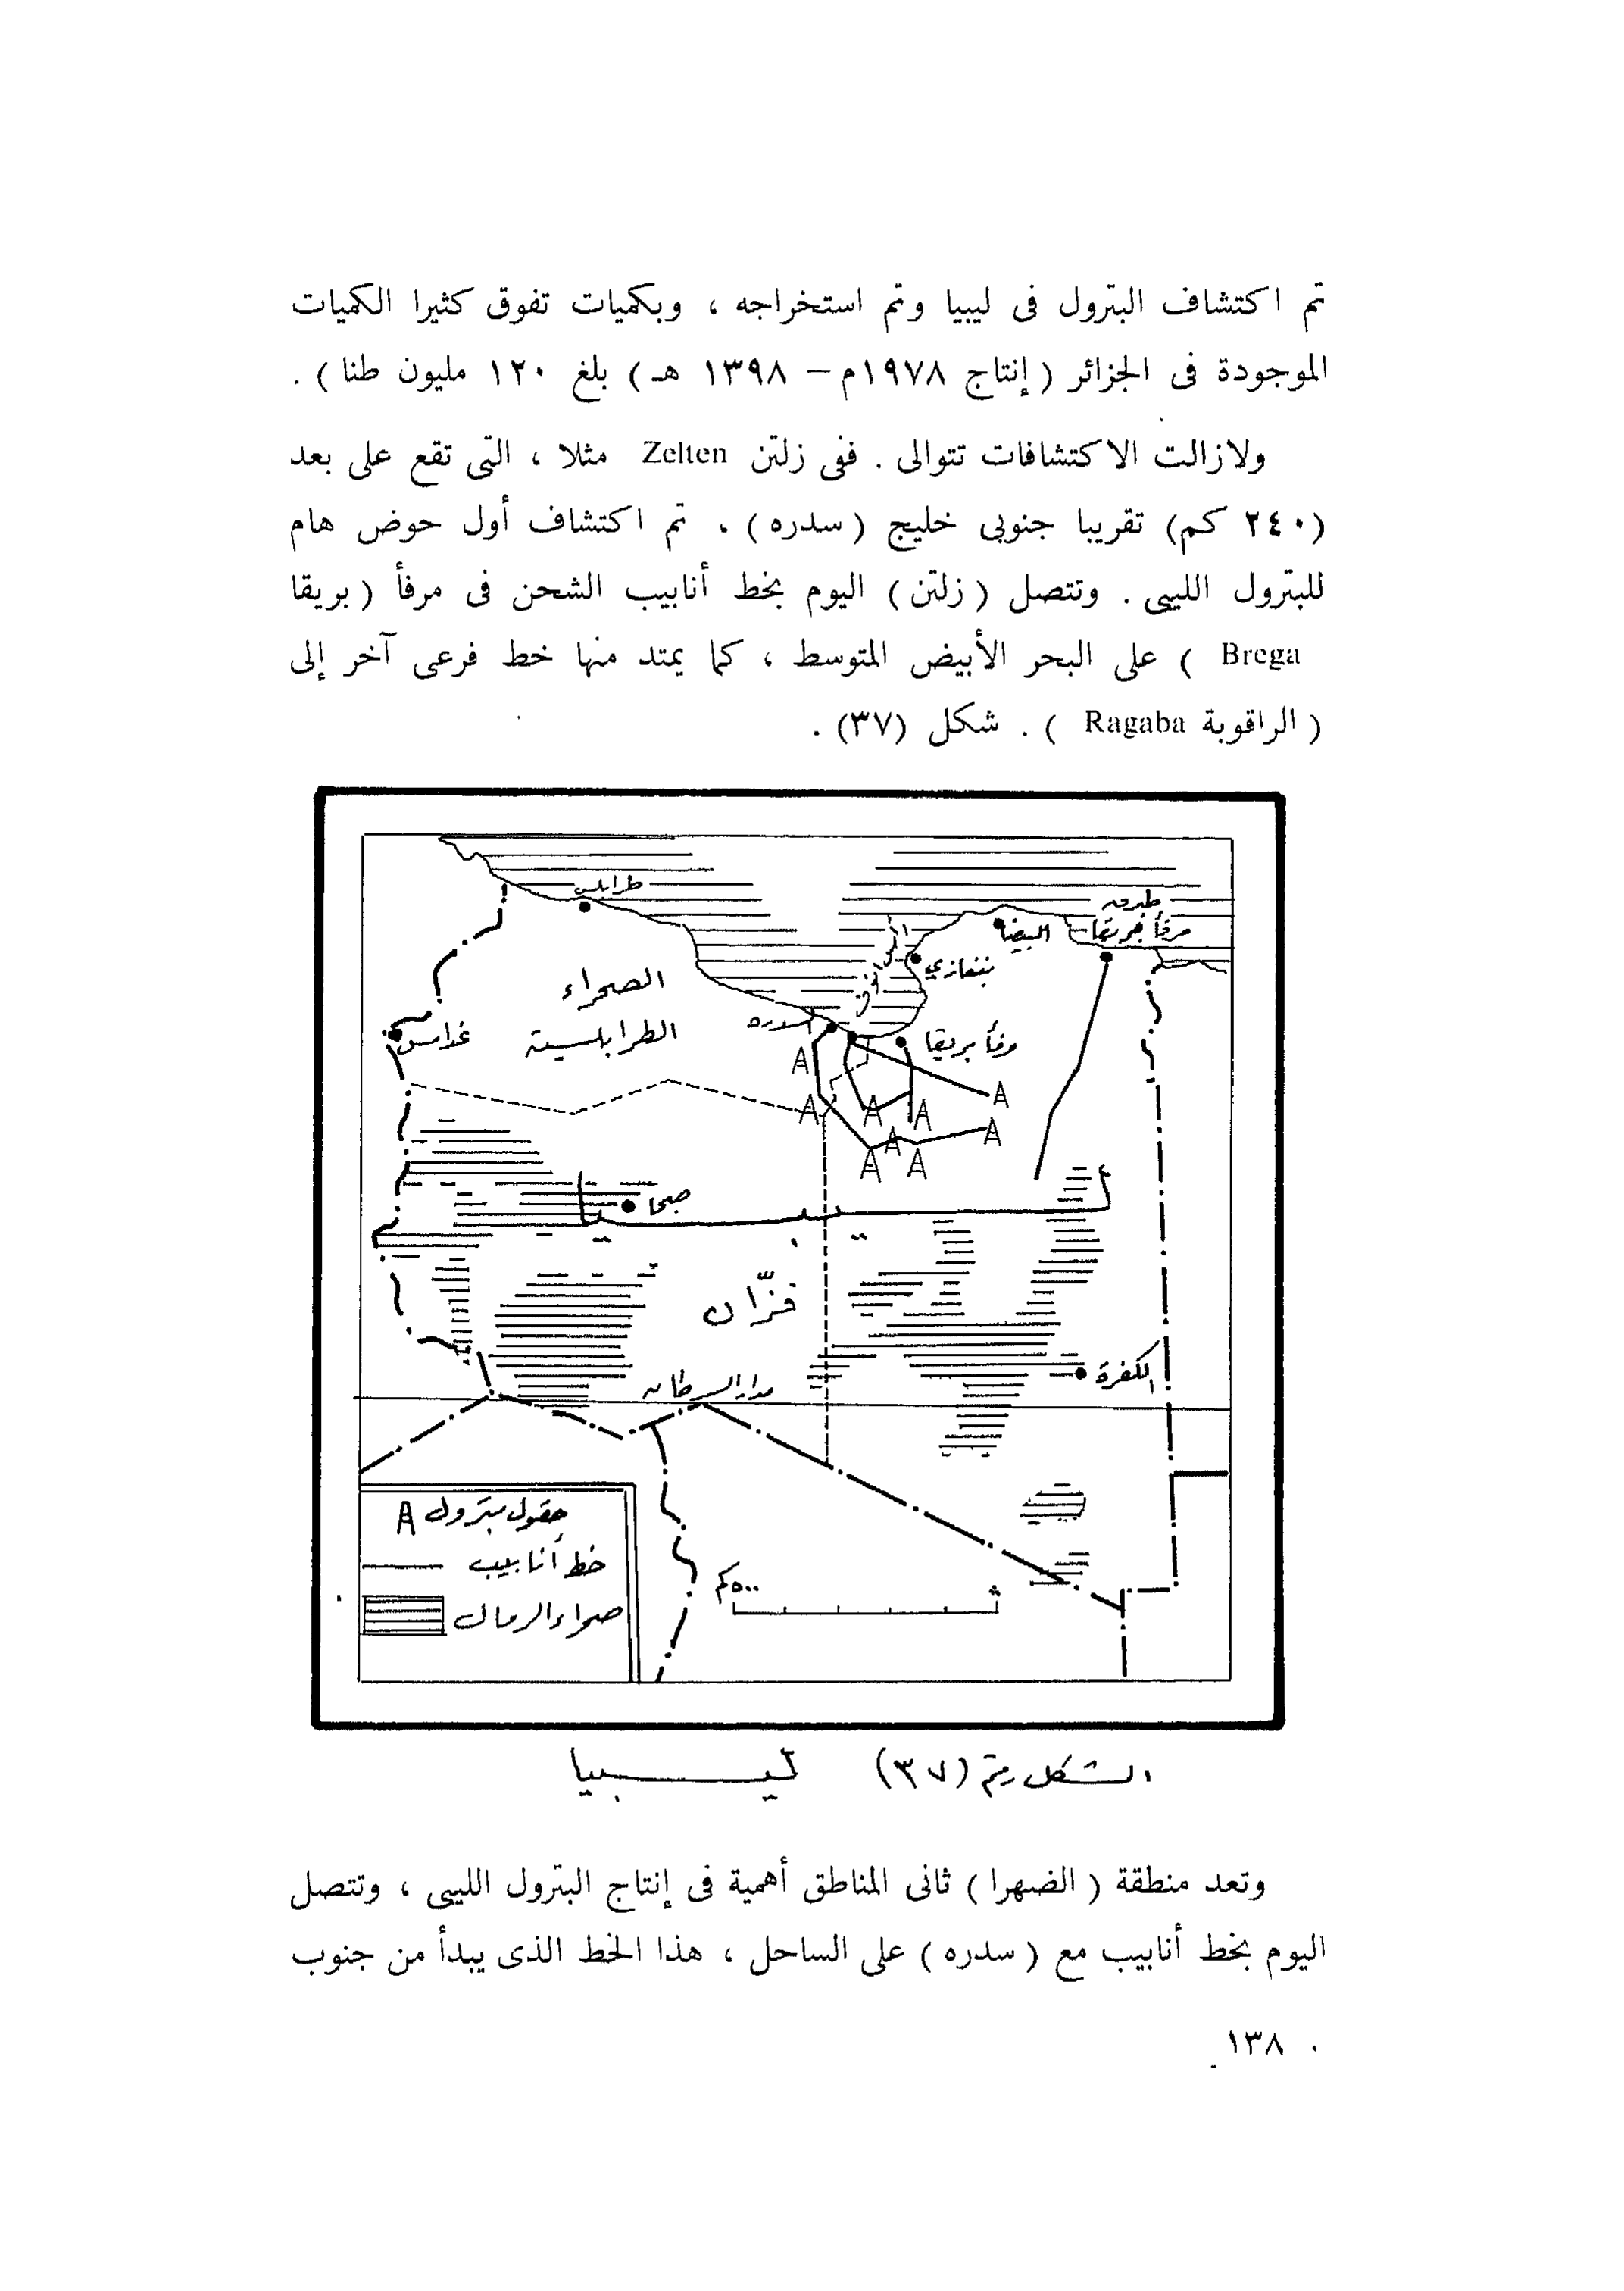 تم اكتشاف البترول فى ليبيا وتم استخراجه ، وبكميات تفوق كثيرا الكميات
الموجودة فى الجزائر ( إنتاج ١٩٧٨م – ١٣٩٨ هـ ) بلغ ١٢٠ مليون طنا ) .
ولازالت الاكتشافات تتوالى . ففى زلتن Zelten مثلا ، التى تقع على بعد
(٢٤٠ كم) تقريبا جنوبى خليج ( سدره ) ، تم اكتشاف أول حوض هام
للبترول الليبى . وتتصل ( زلتن ) اليوم بخط أنابيب الشحن فى مرفأ ( بريقا
Brega ) على البحر الأبيض المتوسط ، كما يمتد منها خط فرعى آخر إلى
( الراقوبة Ragaba ) . شكل (٣٧) .
طرابلس
طبرق
مرفأ هريقا
البيضا
بنغازي
الصحراء
الطرابلسية
غدامس
السدره
مرفأ بريقا
سبحا
ليبيا
فزّان
الكفرة
مدار السرطان
حقول بترول
خط أنابيب
صحراء الرمال
٥٠٠ كم
٠
الشكل رقم (٣٧) ليبيا
وتعد منطقة ( الضهرا ) ثانى المناطق أهمية فى إنتاج البترول الليبى ، وتتصل
اليوم بخط أنابيب مع ( سدره ) على الساحل ، هذا الخط الذى يبدأ من جنوب
١٣٨